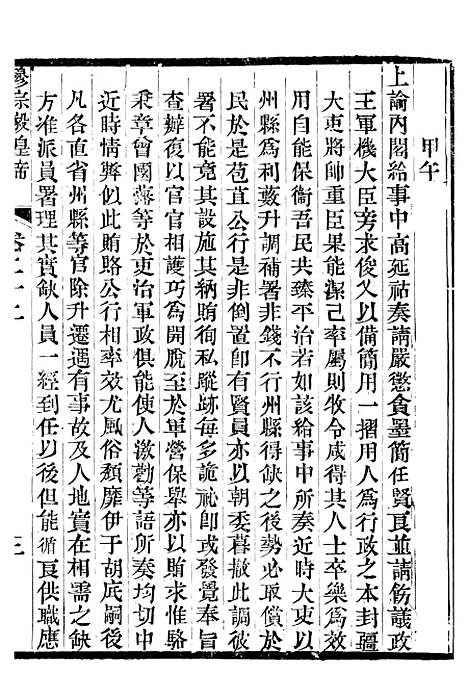 甲午
上諭內閣給事中高延祜奏請嚴懲貪墨簡任賢良並請飭議政
王軍機大臣旁求俊乂以備簡用一摺用人為行政之本封疆
大吏將帥重臣果能潔己率屬則牧令咸得其人士卒樂為效
用自能保衞吾民共臻平治若如該給事中所奏近時大吏以
州縣為利藪升調補署非錢不行州縣得缺之後勢必取償於
民於是苞苴公行是非倒置即有賢員亦以朝委暮撤此調彼
署不能竟其設施其納賄徇私蹤跡每多詭祕即或發覺奉旨
查辦復以官官相護巧為開脫至於軍營保舉亦以賄求惟駱
秉章曾國藩等於吏治軍政俱能使人激勸等語所奏均切中
近時情弊似此賄賂公行相率效尤風俗頹靡伊于胡底嗣後
凡各直省州縣等官除升遷遇有事故及人地實在相需之缺
方准派員署理其實缺人員一經到任以後但能循良供職應
穆宗毅皇帝 卷二十二 三